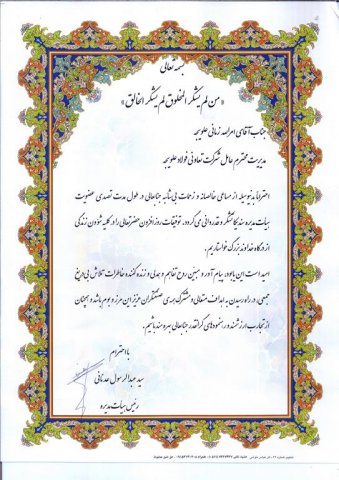 بسمه تعالی
« من لم یشکر المخلوق لم یشکر الخالق »
جناب آقای امرالله زمانی علویجه
مدیریت محترم عامل شرکت تعاونی فولاد علویجه
احتراماً بدینوسیله از مساعی خالصانه و زحمات بی‌شائبه جنابعالی در طول مدت تصدی عضویت
هیات مدیره سندیکا تشکر و قدردانی می‌گردد. توفیقات روزافزون حضرتعالی را در کلیه شئون زندگی
از درگاه خداوند بزرگ خواستاریم.
امید است این یادبود، پیام آور و مبین روح تفاهم و همدلی و زنده کننده خاطرات تلاش بی‌دریغ
جمعی، در راه رسیدن به اهداف متعالی و مشترک همه‌ی صنعتگران عزیز این مرز و بوم باشد و همچنان
از تجارب ارزشمند و رهنمودهای گرانقدر جنابعالی بهره مند باشیم.
با احترام
سید عبدالرسول
رئیس هیات مدیره